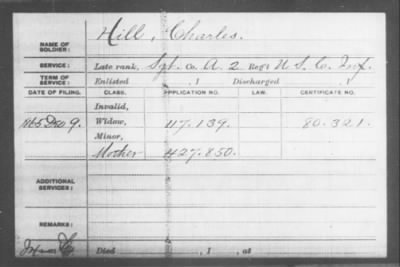 NAME OF SOLDIER: Hill, Charles.
SERVICE: Late rank, Sgt. Co. A. 2 Reg't U. S. C. Inf.
TERM OF SERVICE: Enlisted , 1 Discharged , 1
DATE OF FILING. CLASS. APPLICATION NO. LAW. CERTIFICATE NO.
Invalid,
1865 Dec 9. Widow, 117.139. 80.321.
Minor,
Mother 427.850.
ADDITIONAL SERVICES:
REMARKS:
Died , 1 , at